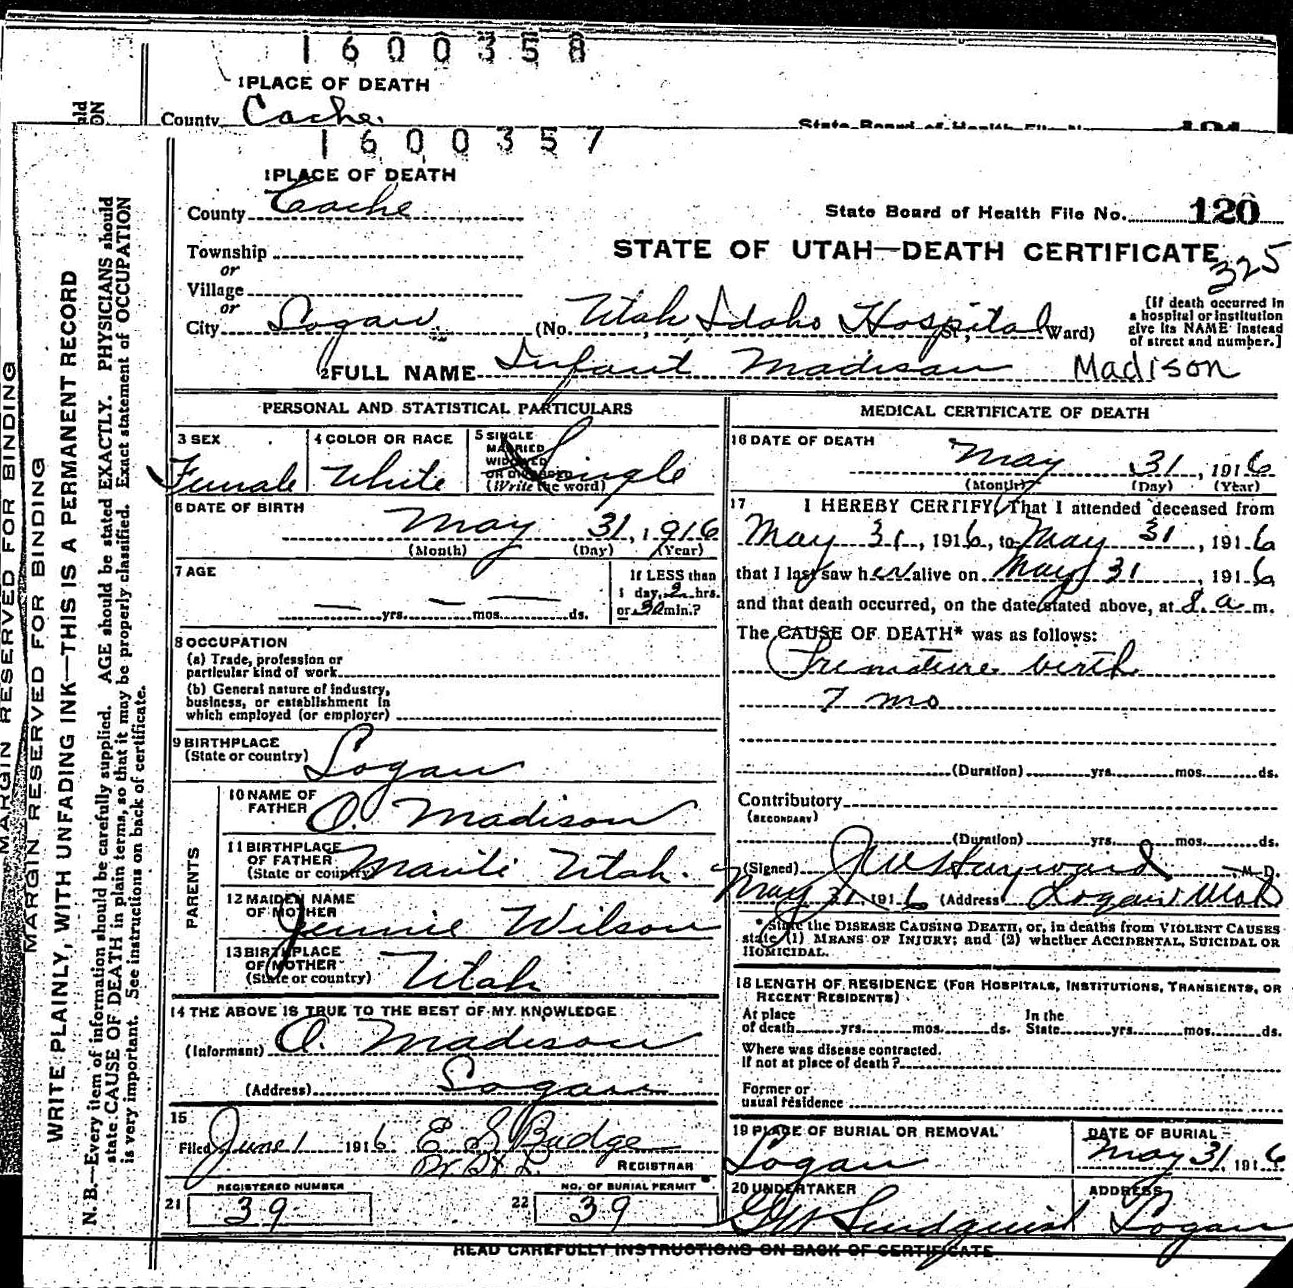 1600358
1 PLACE OF DEATH
County Cache.
1600357
1 PLACE OF DEATH
County Cache
State Board of Health File No. 120
Township
or
STATE OF UTAH—DEATH CERTIFICATE
325
Village
or
City Logan (No. Utah Idaho Hospital St.; Ward)
[If death occurred in
a hospital or institution
give its NAME instead
of street and number.]
2 FULL NAME Infant Madison Madison
PERSONAL AND STATISTICAL PARTICULARS
3 SEX Female
4 COLOR OR RACE White
5 SINGLE
MARRIED
WIDOWED
OR DIVORCED
(Write the word) Single
6 DATE OF BIRTH
May 31, 1916
(Month) (Day) (Year)
7 AGE
— yrs. — mos. — ds.
If LESS than
1 day, 2 hrs.
or 30 min.?
8 OCCUPATION
(a) Trade, profession or
particular kind of work
(b) General nature of industry,
business, or establishment in
which employed (or employer)
9 BIRTHPLACE
(State or country) Logan
PARENTS
10 NAME OF
FATHER O. Madison
11 BIRTHPLACE
OF FATHER
(State or country) Manti Utah.
12 MAIDEN NAME
OF MOTHER Jennie Wilson
13 BIRTHPLACE
OF MOTHER
(State or country) Utah
14 THE ABOVE IS TRUE TO THE BEST OF MY KNOWLEDGE
(Informant) O. Madison
(Address) Logan
15
Filed June 1 1916 E S Budge
REGISTRAR
REGISTERED NUMBER
21 39
NO. OF BURIAL PERMIT
22 39
MEDICAL CERTIFICATE OF DEATH
16 DATE OF DEATH
May 31, 1916
(Month) (Day) (Year)
17 I HEREBY CERTIFY, That I attended deceased from
May 31, 1916, to May 31, 1916
that I last saw her alive on May 31, 1916
and that death occurred, on the date stated above, at 8 a m.
The CAUSE OF DEATH* was as follows:
Premature birth
7 mo
(Duration) yrs. mos. ds.
Contributory
(SECONDARY)
(Duration) yrs. mos. ds.
(Signed) J W Hayward, M. D.
May 31 1916 (Address) Logan Utah
* State the DISEASE CAUSING DEATH, or, in deaths from VIOLENT CAUSES
state (1) MEANS OF INJURY; and (2) whether ACCIDENTAL, SUICIDAL OR
HOMICIDAL.
18 LENGTH OF RESIDENCE (FOR HOSPITALS, INSTITUTIONS, TRANSIENTS, OR
RECENT RESIDENTS)
At place
of death yrs. mos. ds.
In the
State yrs. mos. ds.
Where was disease contracted.
If not at place of death?
Former or
usual residence
19 PLACE OF BURIAL OR REMOVAL
Logan
DATE OF BURIAL
May 31 1916
20 UNDERTAKER
G W Lindquist
ADDRESS
Logan
READ CAREFULLY INSTRUCTIONS ON BACK OF CERTIFICATE
MARGIN RESERVED FOR BINDING
MARGIN RESERVED FOR BINDING
WRITE PLAINLY, WITH UNFADING INK—THIS IS A PERMANENT RECORD
N. B.—Every item of information should be carefully supplied. AGE should be stated EXACTLY. PHYSICIANS should
state CAUSE OF DEATH in plain terms, so that it may be properly classified. Exact statement of OCCUPATION
is very important. See instructions on back of certificate.